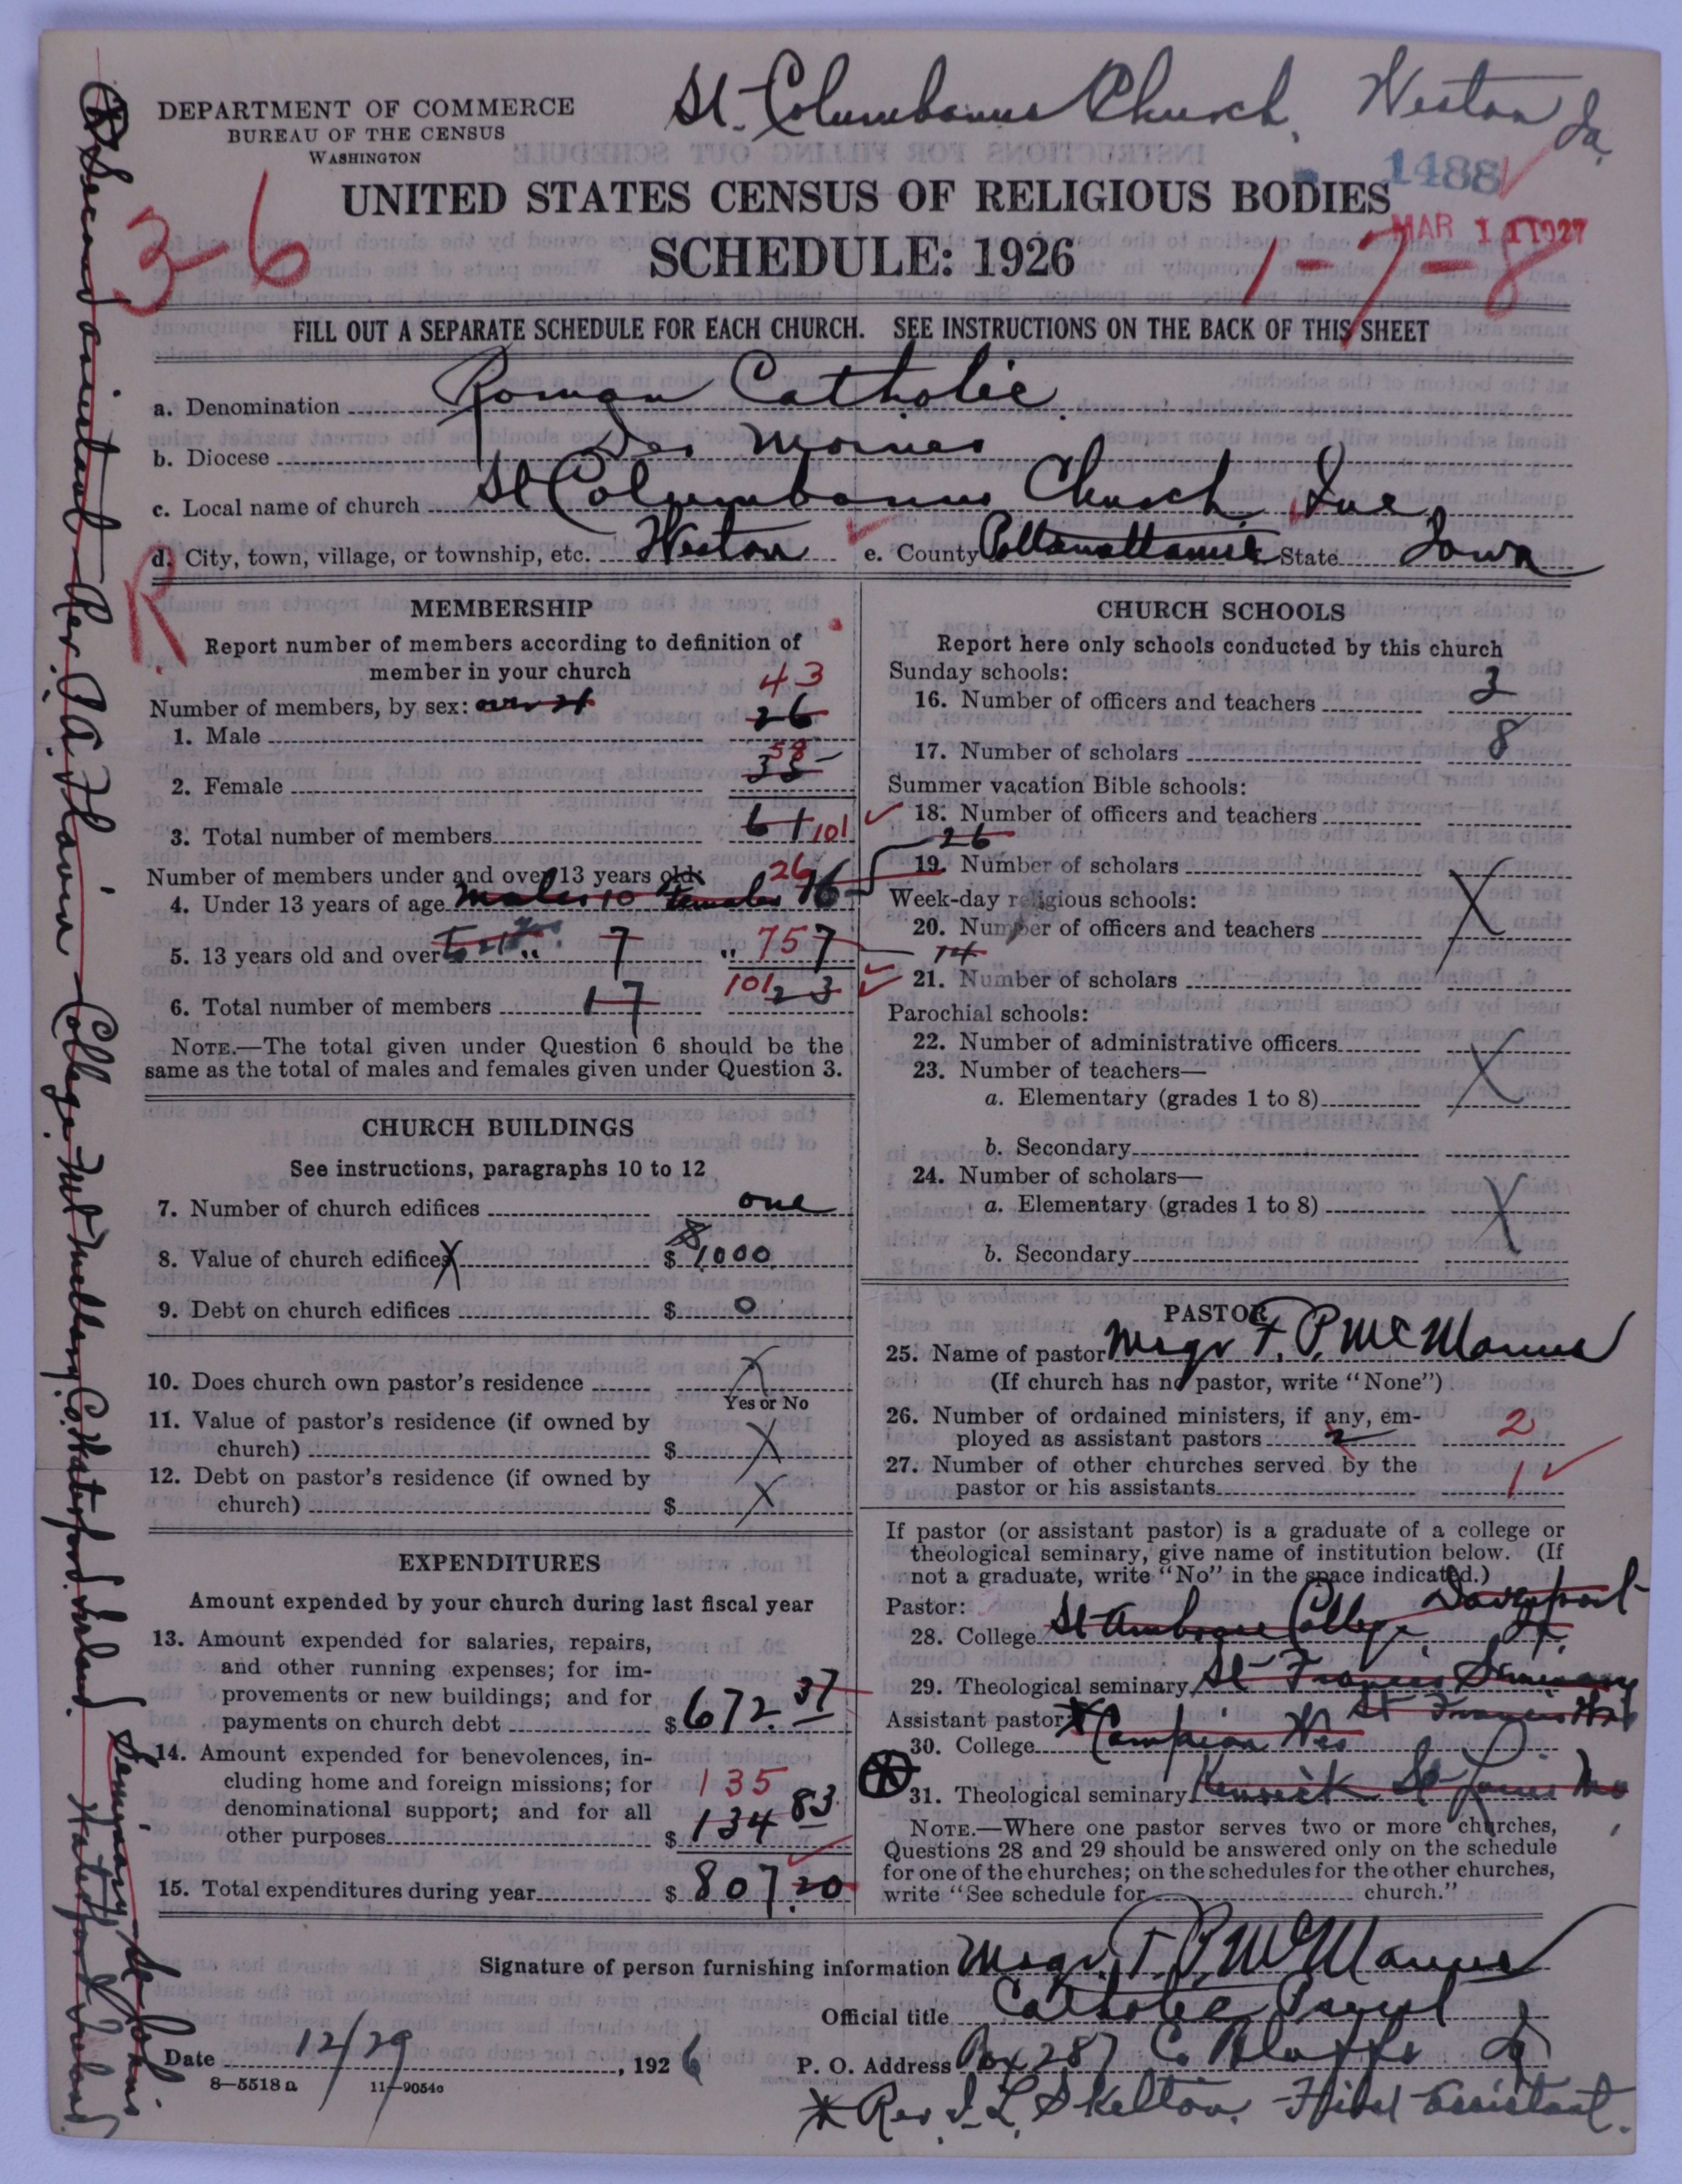 St. Columbanus Church, Weston Ia.
DEPARTMENT OF COMMERCE
BUREAU OF THE CENSUS
WASHINGTON
1488
UNITED STATES CENSUS OF RELIGIOUS BODIES
MAR 11 1927
SCHEDULE: 1926
3-6
1-7-8
FILL OUT A SEPARATE SCHEDULE FOR EACH CHURCH. SEE INSTRUCTIONS ON THE BACK OF THIS SHEET
a. Denomination Roman Catholic
b. Diocese Des Moines
c. Local name of church St Columbanus Church, Inc,
d. City, town, village, or township, etc. Weston e. County Pottawattamie State Iowa
R
MEMBERSHIP
Report number of members according to definition of
member in your church
Number of members, by sex: over 21
43
1. Male 26
58
2. Female 35
3. Total number of members 61 101
Number of members under and over 13 years old:
26
4. Under 13 years of age males 10 females 16
5. 13 years old and over " 7 " 75 7
6. Total number of members 17 101 23
NOTE.—The total given under Question 6 should be the
same as the total of males and females given under Question 3.
CHURCH BUILDINGS
See instructions, paragraphs 10 to 12
7. Number of church edifices one
8. Value of church edifices X $ 1000
9. Debt on church edifices $ 0
10. Does church own pastor's residence X
Yes or No
11. Value of pastor's residence (if owned by
church) $ X
12. Debt on pastor's residence (if owned by
church) $ X
EXPENDITURES
Amount expended by your church during last fiscal year
13. Amount expended for salaries, repairs,
and other running expenses; for im-
provements or new buildings; and for
payments on church debt $ 672.37
14. Amount expended for benevolences, in-
cluding home and foreign missions; for
135
denominational support; and for all
other purposes $ 134 83
15. Total expenditures during year $ 807.20
CHURCH SCHOOLS
Report here only schools conducted by this church
Sunday schools:
16. Number of officers and teachers 2
17. Number of scholars 8
Summer vacation Bible schools:
18. Number of officers and teachers
26
19. Number of scholars X
Week-day religious schools:
20. Number of officers and teachers
14
21. Number of scholars
Parochial schools:
22. Number of administrative officers X
23. Number of teachers—
a. Elementary (grades 1 to 8)
b. Secondary
24. Number of scholars—
a. Elementary (grades 1 to 8) X
b. Secondary
PASTOR
25. Name of pastor Msgr F. P. McManus
(If church has no pastor, write "None")
26. Number of ordained ministers, if any, em-
ployed as assistant pastors 2 2
27. Number of other churches served by the
pastor or his assistants 1
If pastor (or assistant pastor) is a graduate of a college or
theological seminary, give name of institution below. (If
not a graduate, write "No" in the space indicated.)
Pastor:
28. College St Ambrose College, Davenport Ia.
29. Theological seminary St Francis Seminary
St Francis Wis
Assistant pastor:
30. College Campion Wis
31. Theological seminary Kenrick St Louis Mo
NOTE.—Where one pastor serves two or more churches,
Questions 28 and 29 should be answered only on the schedule
for one of the churches; on the schedules for the other churches,
write "See schedule for church."
Signature of person furnishing information Msgr. F. P. McManus
Official title Catholic Priest
Date 12/29, 1926
P. O. Address Box 287 C. Bluffs Ia
8—5518 a 11—9054a
* Rev. J. L. Skelton. First Assistant.
Second assistant—Rev. P. A. College Mt Mellary, Co. Waterford. Ireland.
Seminary, St Johns
Waterford Ireland